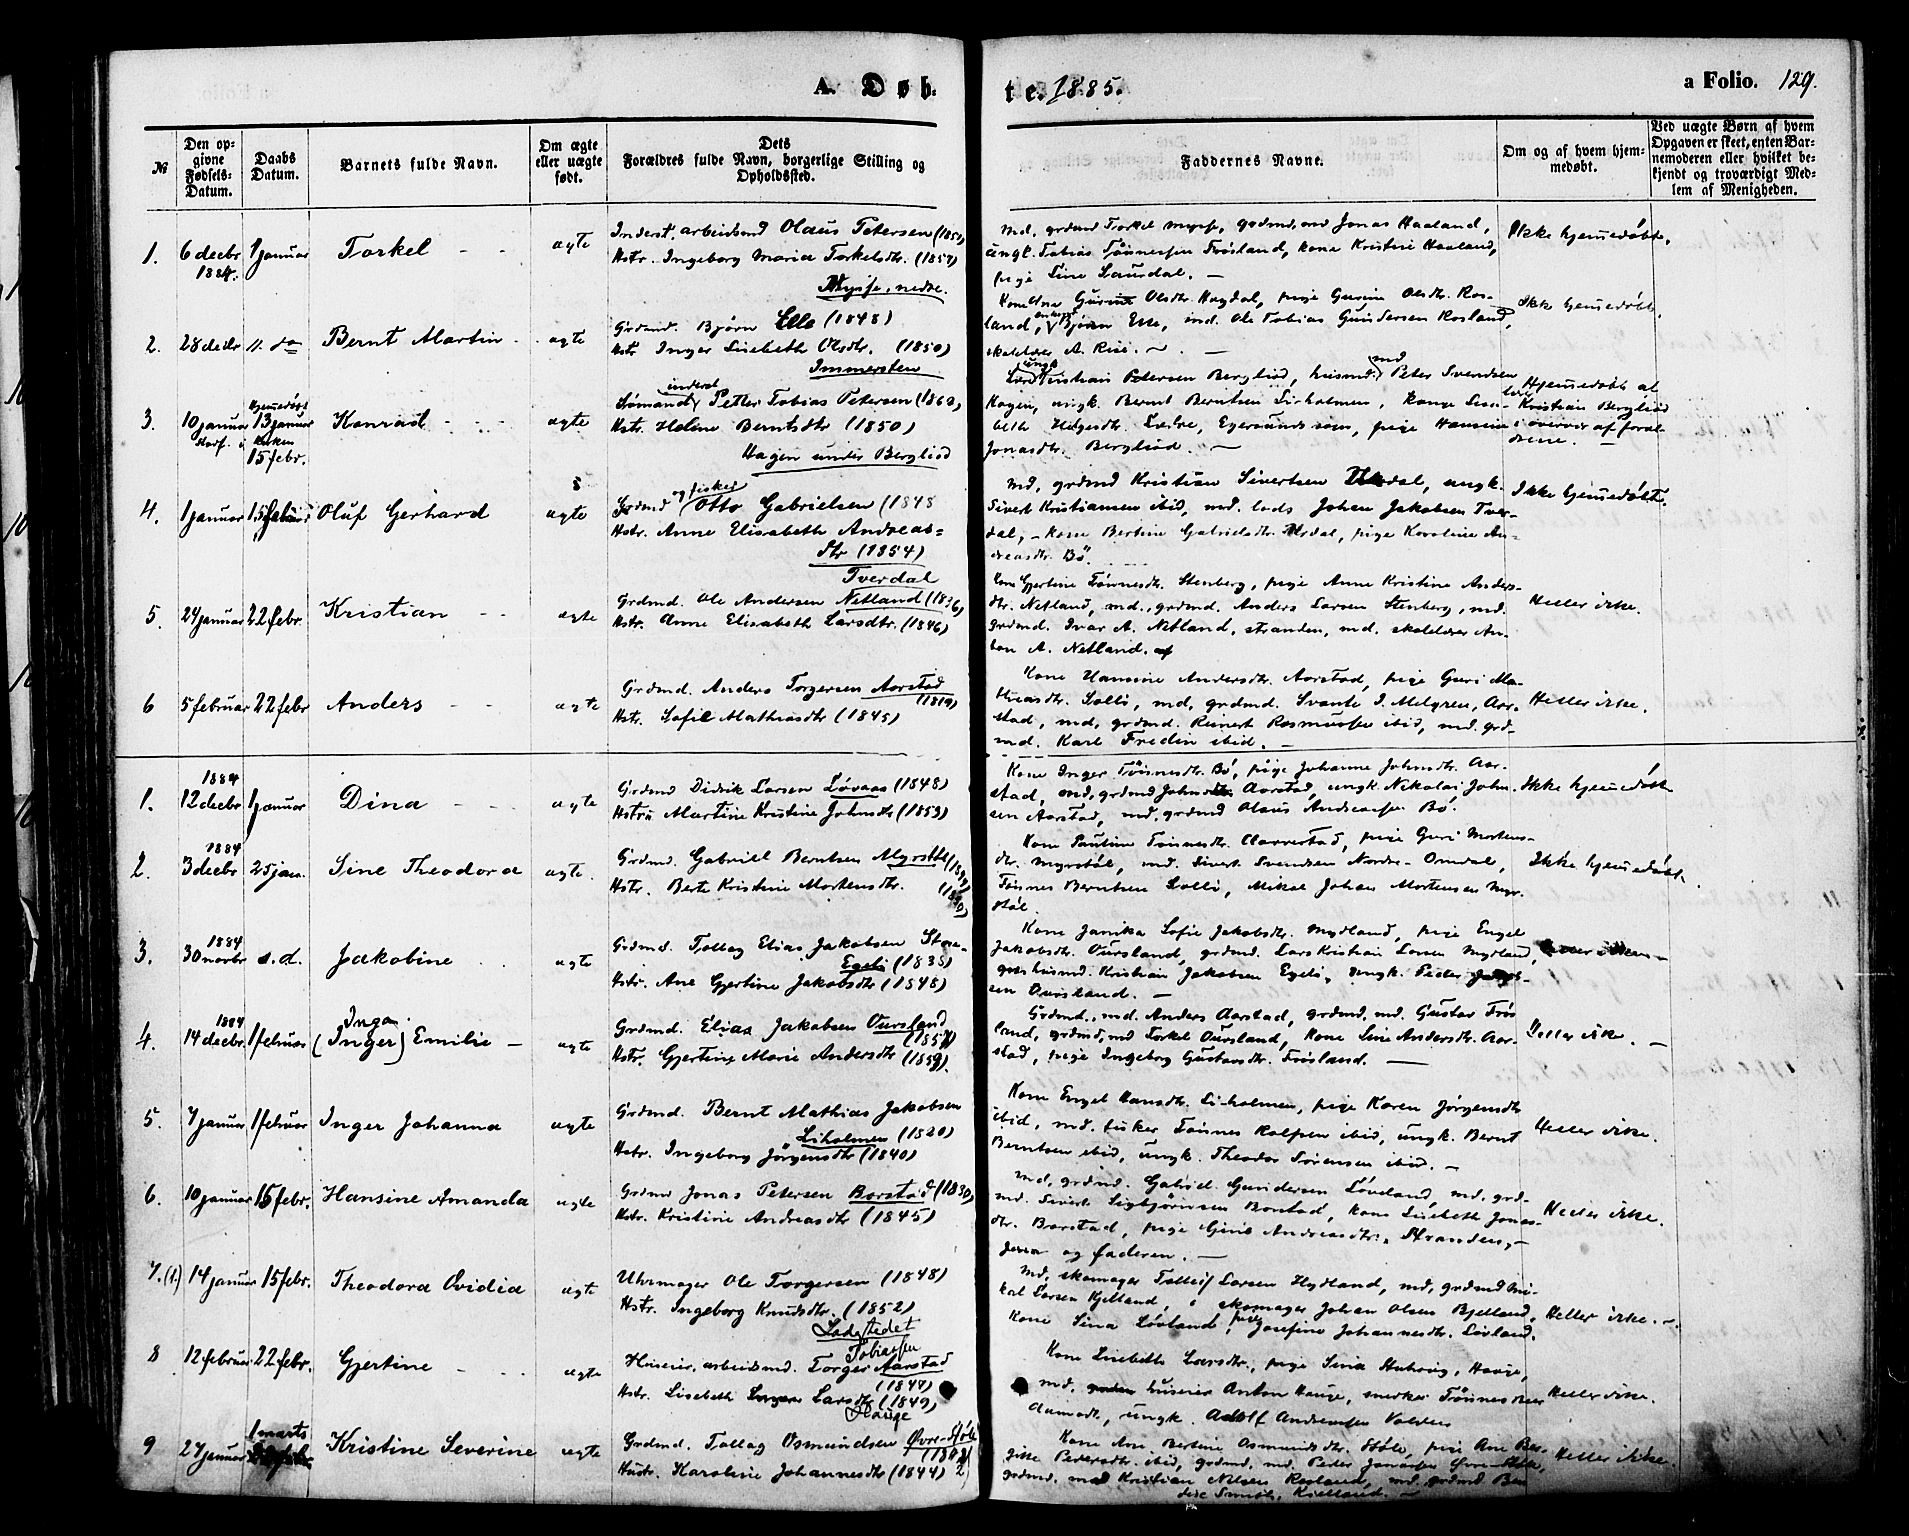 A. Døb-
te. 1885.
a Folio. 129.
№
Den op-
givne
Fødsels-
Datum.
Daabs
Datum.
Barnets fulde Navn.
Om ægte
eller uægte
født.
Dets
Forældres fulde Navn, borgerlige Stilling og
Opholdssted.
Faddernes Navne.
Om og af hvem hjem-
medøbt.
Ved uægte Børn af hvem
Opgaven er skeet, enten Bar-
nemoderen eller hvilket be-
kjendt og troværdigt Med-
lem af Menigheden.
1. 6 decbr 1884 1 januar Torkel - - ægte
Inderst. arbeidsmd Olaus Petersen
Hstr. Ingeborg Maria Torkelsdtr. (1857)
Mysse, nedre.
md. grdmd Torkel Mysse, grdmd, md Jonas Haaland,
ungk. Tobias Tønnessen Frøsland, kone Kristine Haaland,
pige Sine Saurdal. -
Ikke hjemedøbt.
2. 28 decbr 11. do Bernt Martin - ægte
Grdmd. Bjørn Elle (1848)
Hstr Inger Lisebeth Olsdtr. (1850)
Immersten
Olsdtr. Hagdal, pige Gurine Olsdtr. Ros-
land, Bjørn Elle, md. Ole Tobias Gundersen Rosland,
skolelærer A. Risi. -
Ikke hjemedøbt.
3. 10 januar Hjemedøbt 13 januar Kirken 15 febr. Konrad - - ægte
Sømand inderst Petter Tobias Petersen (1860)
Hstr. Helene Berntsdtr (1850)
Hagen under Bergliod
Kristian Petersen Bergliod, husmd. md Peter Svendsen
Hagen, ungk. Bernt Berntsen Lirholmen, Kone Lise-
beth Helgesdtr. Egersunds sogn, pige Hansine
Jonasdtr. Bergliod. -
Hjemedøbt af
Kristian Bergliod
i overvær af foræl-
drene. -
4. 1 januar 15 febr Oluf Gerhard ægte
Grdmd og fisker Otto Gabrielsen (1848
Hstr. Anne Elisabeth Andreas-
dtr (1854)
Tverdal
md, grdmd Kristian Sivertsen Urdal, ungk.
Sivert Kristiansen ibid, md. lods Johan Jakobsen Tver-
dal, - kone Bertine Gabrielsdtr. Urdal, pige Karoline An-
dreasdtr. Bø.
Ikke hjemedøbt.
5. 24 januar 22 febr. Kristian - - ægte
Grdmd. Ole Andersen Netland (1836)
Hstr. Anne Elisabeth Larsdtr. (1846)
Kone Gjertine Tønnesdtr. Stenberg, pige Anne Kristine Anders-
dtr. Netland, md., grdmd. Anders Larsen Stenberg, md.
grdmd. Ivar A. Netland, stranden, md. skolelærer An-
ton A. Netland.
Heller ikke.
6 5 februar 22 febr Anders - - ægte
Grdmd. Anders Torgersen Aarstad
(1819)
Hstr. Sofie Mathiasdtr (1845)
Kone Hansine Andersdtr. Aarstad, pige Guri Ma-
thiasdtr. Solli, md, grdmd. Svante J. Melgren, Aar-
stad, md, grdmd. Reinert Rasmussen ibid, md. grd-
md. Karl Fredin ibid. -
Heller ikke.
1. 1884 12 decbr 1 januar Dina - - - ægte
Grdmd Didrik Larsen Løvaas (1848)
Hstru Martine Kristine Johnsdtr (1859)
Kone Inger Tønnesdtr. Bø, pige Johanne Johnsdtr. Aar-
stad, md, grdmd John Aarstad, ungk. Nikolai John-
sen Aarstad, md. grdmd Olaus Andreassen Bø.
Ikke hjemedøbt
2. 1884 3 decbr 25 jan. Sine Theodora ægte.
Grdmd. Gabriel Berntsen Myrstøl
Hstr. Berte Kristine Mortensdtr.
Kone Pauline Tønnesdtr. Aarrestad, pige Guri Mortens-
dtr. Myrstøl, md. Sivert Svendsen Nordre-Omdal,
Tønnes Berntsen Solli, Mikal Johan Mortensen Myr-
støl.
Ikke hjemedøbt.
3. 1884 30 novbr s.d. Jakobine . . ægte
Grdmd. Tollag Elias Jakobsen Store-
Egeli (1835)
Hstr. Ane Gjertine Jakobsdtr (1848)
Kone Janika Sofie Jakobsdtr. Mydland, pige Engel
Jakobsdtr. Øursland, grdmd. Lars Kristian Larsen Mydland,
husmd. Kristian Jakobsen Egeli, ungk. Peder
sen Øursland. -
4. 1884 14 decbr 1 februar Inga (Inger) Emilie - ægte
Grdmd. Elias Jakobsen Øursland
(1857)
Hstr. Gjertine Marie Andersdtr (1859).
Grdmd., md. Anders Aarstad, grdmd, md. Gustav Frøs-
land, grdmd, md Torkel Øursland, Kone Sine Andersdtr. Aar-
stad, pige Ingeborg Gustavsdtr. Frøsland. -
Heller ikke. -
5. 7 januar 1 februar Inger Johanna ægte
Grdmd. Bernt Mathias Jakobsen
Liholmen (1820)
Hstr. Ingeborg Jørgensdtr (1840)
Kone Engel Hansdtr. Liholmen, pige Karen Jørgensdtr
ibid, md. fisker Tønnes Rolfsen ibid, ungk. Bernt
Berntsen ibid, ungk. Theodor Sørensen ibid. -
Heller ikke.
6. 10 januar 15 febr. Hansine Amanda ægte
Grdmd Jonas Petersen Barstad (1830)
Hstr. Kristine Andreasdtr (1845)
md, grdmd. Gabriel Gundersen Løveland, md. grd-
md. Sivert Sigbjørnsen Barstad, kone Lisebeth Jonas-
dtr. Barstad, pige Gine Andreasdtr., Stranden, -
og faderen. -
Heller ikke.
7. (1.) 14 januar 15 febr. Theodora Ovidia ægte
Uhrmager Ole Torgersen (1848)
Hstr. Ingeborg Knudsdtr. (1852)
Ladestedet
md, skomager Tollef Larsen Hydland, md, grdmd Mi-
kal Larsen Kjelland, skomager Johan Olsen Bjelland,
Kone Sina Løvland, pige Josefine Johannesdtr. Løvland.
Heller ikke. -
8 12 februar 22 febr. Gjertine - - - ægte
Huseier, arbeidsmd. Torger Tobiassen Aarstad
(1847)
Hstr. Lisebeth Larsdtr (1849)
Hauge
Kone Lisebeth Larsdtr., pige Sina Hauge,
md. huseier Anton Hauge, snedker Tønnes
Aamodt, ungk. Adolf Andreassen
Heller ikke.
9 27 januar 1 marts Kristine Severine ægte
Grdmd. Tollag Osmundsen Øvre-Støle
Hustr. Karoline Johannesdtr (1844)
Kone Ane Bertine Osmundsdtr. Støle, pige Ane Ber-
gitte Pedersdtr. ibid, grdmd. md. Peder Jonassen Øvre-Støle,
grdmd, md Kristian Nilsen Rosland, md. grdmd Ben-
dix Kielland. -
Heller ikke.